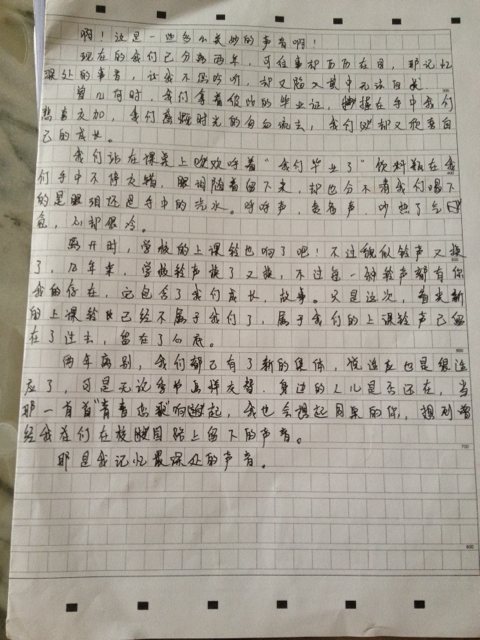 啊！这是一些多么美妙的声音啊！
现在的我们已分离两年，可往事却历历在目，那记忆
深处的声音，让我不忍聆听，却又陷入其中无法自拔。
曾几何时，我们拿着彼此的毕业证，握在手中我们
悲喜交加，我们感慨时光的匆匆流去，我们却又欣喜自
己的成长。
我们站在课桌上欢呼着“我们毕业了”饮料瓶在我
们手中不停交错，眼泪随着留下来，却也分不清我们喝下
的是眼泪还是手中的汽水。呼呼声，
意，心却很冷。
离开时，学校的上课铃也响了吧！不过貌似铃声又换
了，几年来，学校铃声换了又换，不过每一种铃声都有你
我的存在，它包含了我们成长，故事。只是这次，看来新
的上课铃已经不属于我们了，属于我们的上课铃声已留
在了过去，留在了心底。
两年离别，我们都已有了新的集体，说适应也是很适
应了，可是无论季节怎样交替，身边的人儿是否还在，当
那一首首“青春恋歌”响起，我也会想起同桌的你，想到曾
经我们在校园路上留下的声音。
那是我记忆最深处的声音。
500
600
700
800